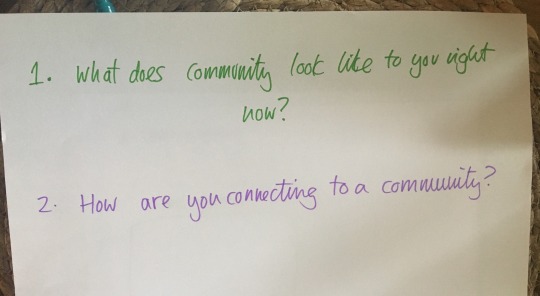 1. What does community look like to you right
now?
2. How are you connecting to a community?